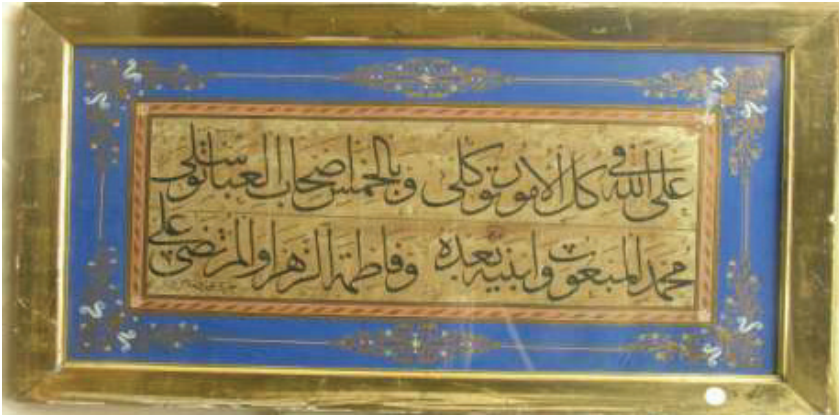 على الله في كل الامور توكلي وبالخمس اصحاب العباء توسلي
محمد المبعوث وابنيه بعده وفاطمة الزهراء والمرتضى علي